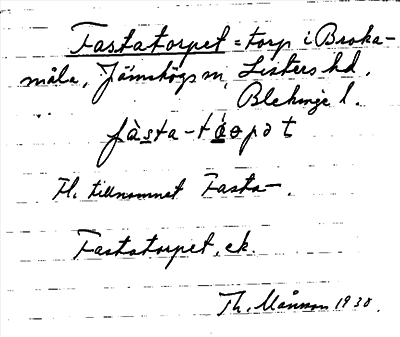 Fastatorpet = torp i Broka-
måla, Jämshögs sn, Listers hd.
Blekinge l.
fàsta-tɷrpət
Fl. tillnamnet Fasta-.
Fastatorpet, ek.
Th. Månsson 1930.